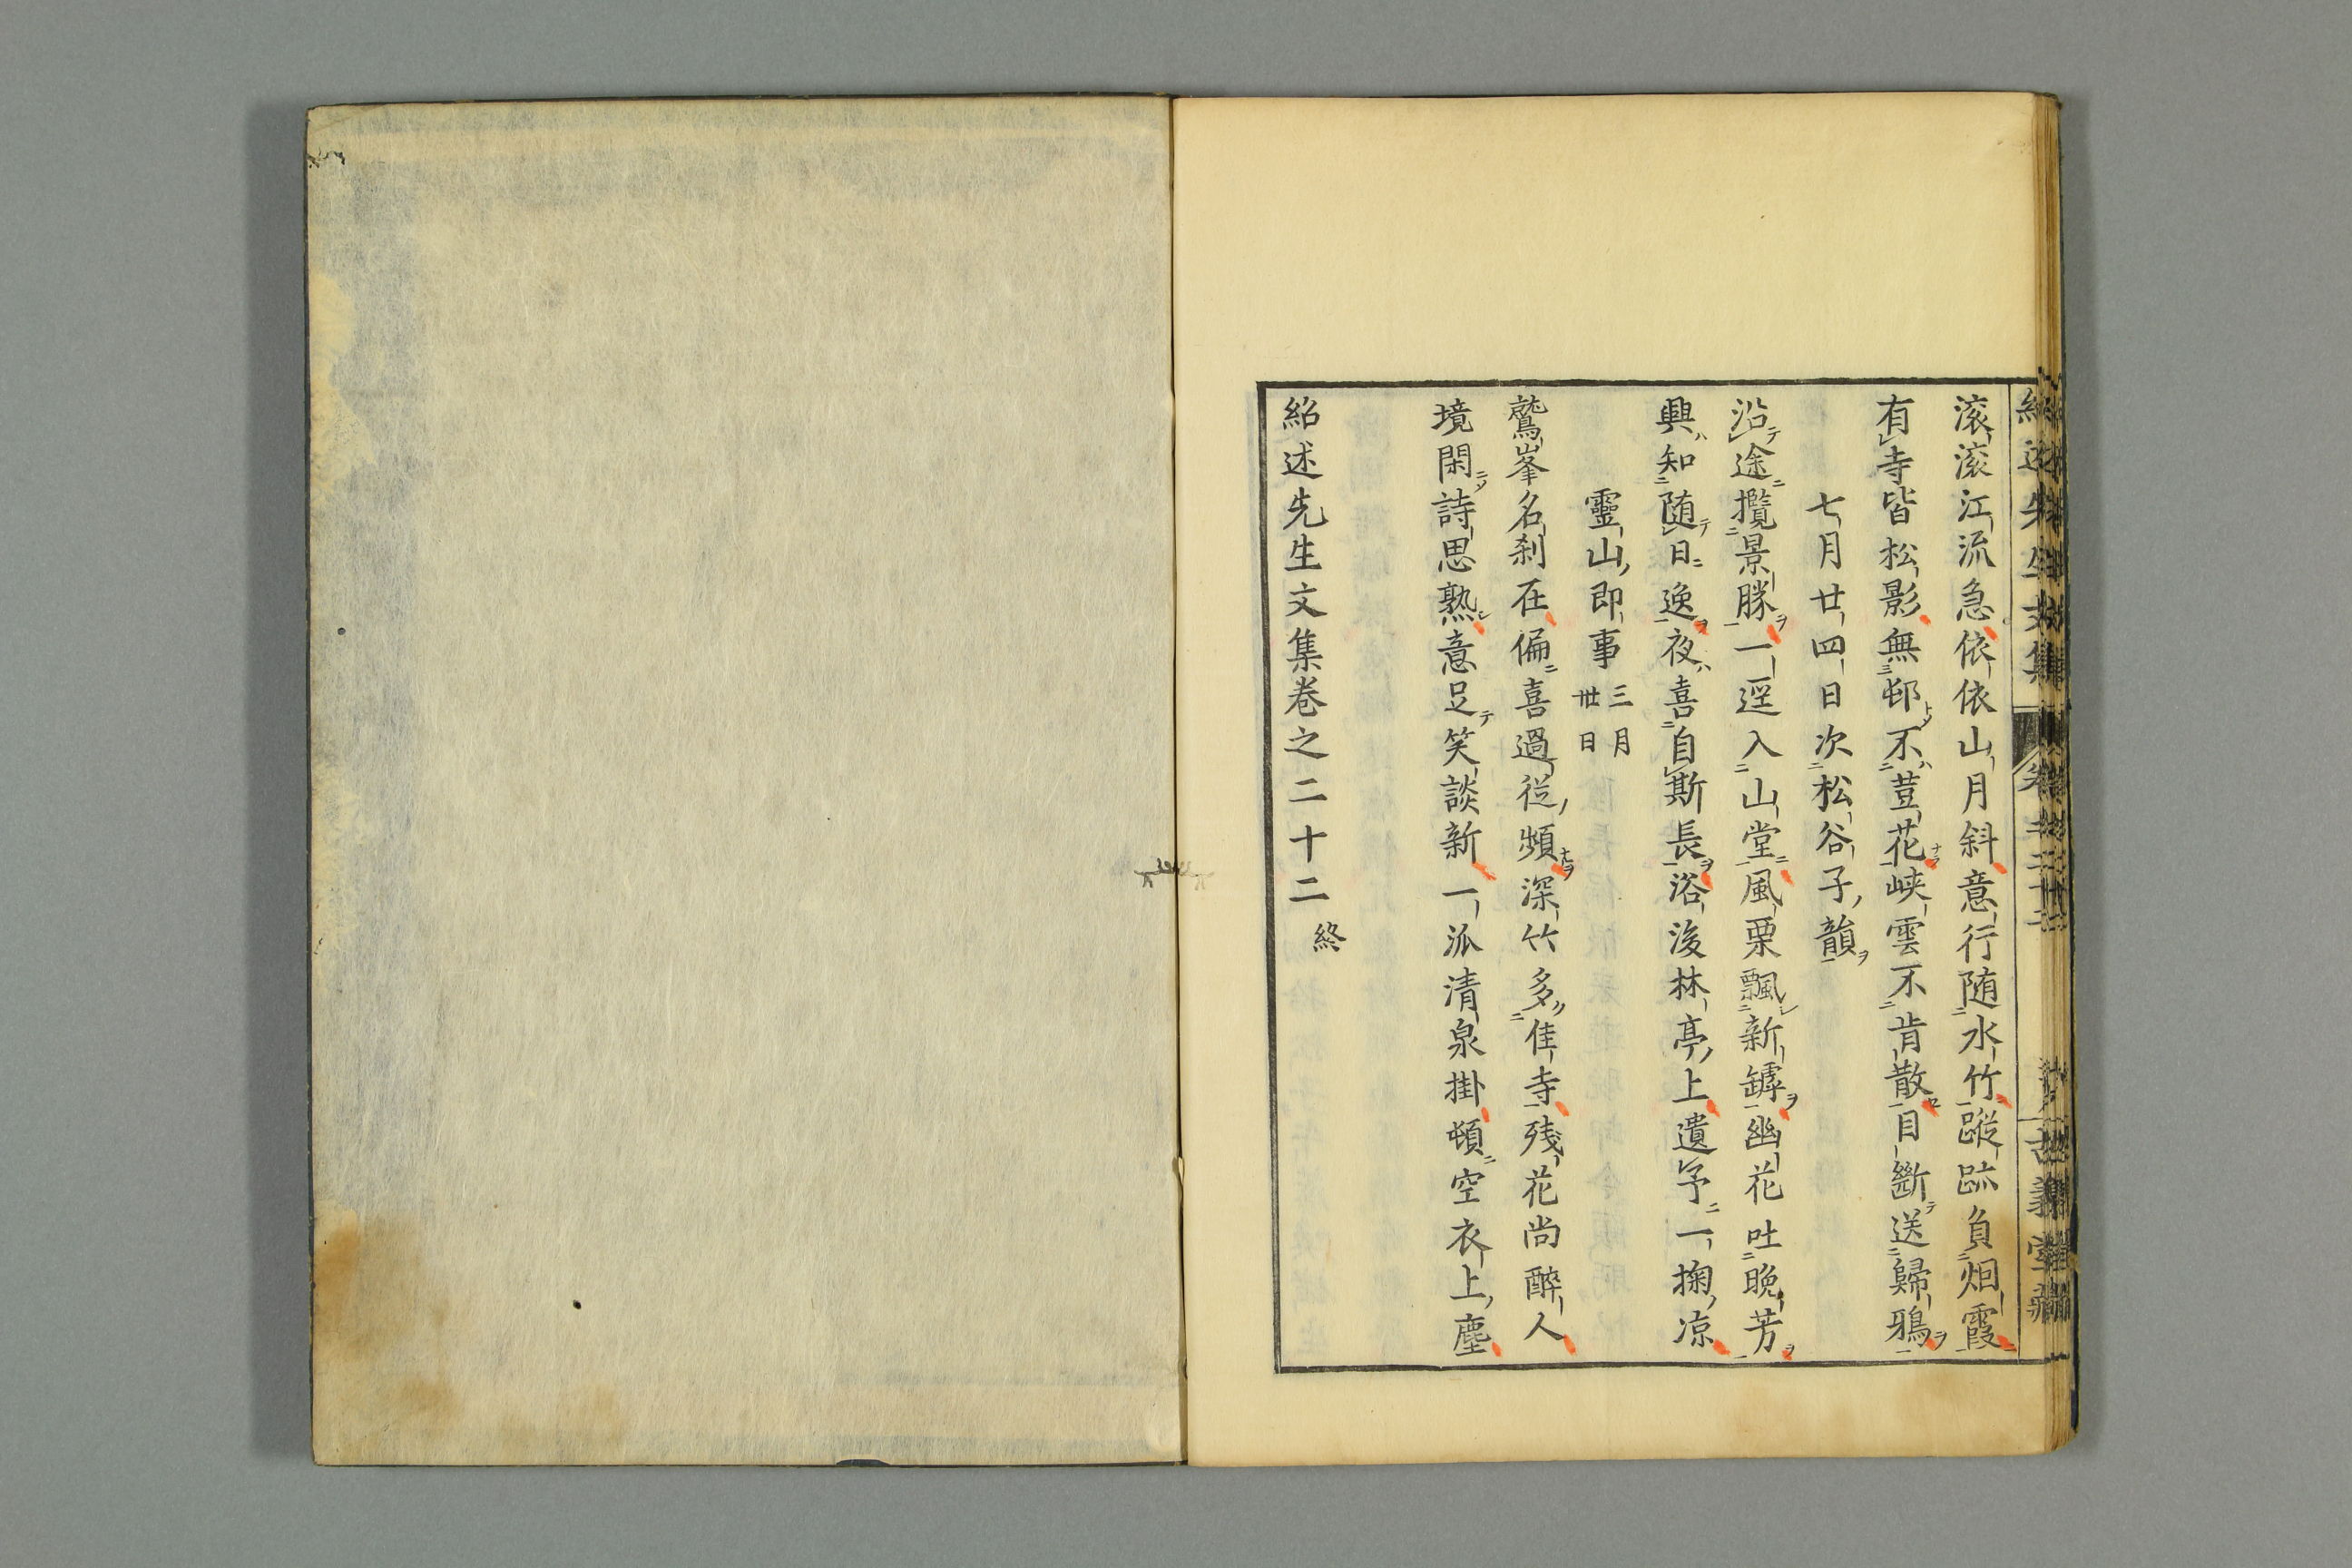 滚滚江流急依依山月斜意行随水竹蹤跡負烟霞
有寺皆松影無邨不荳花峡雲不肯散目斷送歸鴉
七月廿四日次松谷子韻
沿途攬景勝一逕入山堂風栗飄新罅幽花吐晩芳
興知随日逸夜喜自斯長浴後林亭上遺予一掬凉
靈山即事 三月卅日
鷲峯名刹在偏喜過從頻深竹多佳寺残花尚醉人
境閑詩思熟意足笑談新一派清泉掛頓空衣上塵
紹述先生文集巻之二十二 終